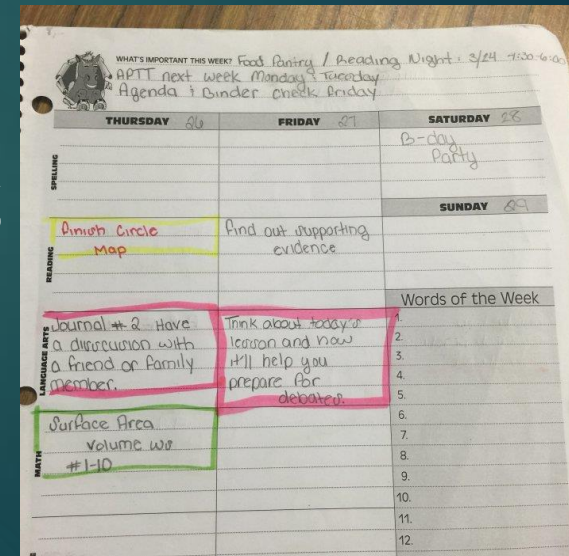 WHAT'S IMPORTANT THIS WEEK? Food Pantry / Reading Night: 3/24
APTT next week Monday & Tuesday
Agenda & Binder check Friday
THURSDAY 26
FRIDAY 27
SATURDAY 28
SPELLING
B-day
Party
SUNDAY 29
READING
Finish Circle
Map
Find out supporting
evidence
Words of the Week
LANGUAGE ARTS
Journal #2 Have
a discussion with
a friend or family
member.
Think about today's
lesson and how
it'll help you
prepare for
debates.
1.
2.
3.
4.
5.
MATH
Surface Area
Volume WS
#1-10
6.
7.
8.
9.
10.
11.
12.